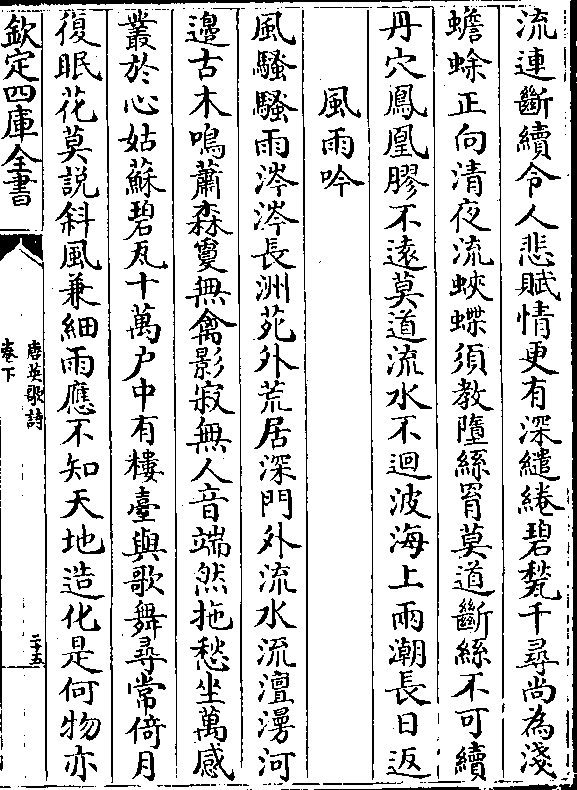 流連斷續令人悲賦情更有深繾綣碧甃千尋尚為淺
蟾蜍正向清夜流蛺蝶須教墮絲罥莫道斷絲不可續
丹穴鳳凰膠不遠莫道流水不迴波海上兩潮長日返
風雨吟
風騷騷雨涔涔長洲苑外荒居深門外流水流澶漫河
邊古木鳴蕭森夐無禽影寂無人音端然拖愁坐萬感
叢於心姑蘇碧瓦十萬户中有樓臺與歌舞尋常倚月
復眠花莫説斜風兼細雨應不知天地造化是何物亦
欽定四庫全書
唐英歌詩
卷下
二十五